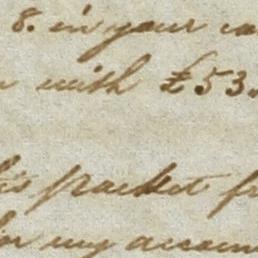 8. in your
with £53.
his packet
for my accoun